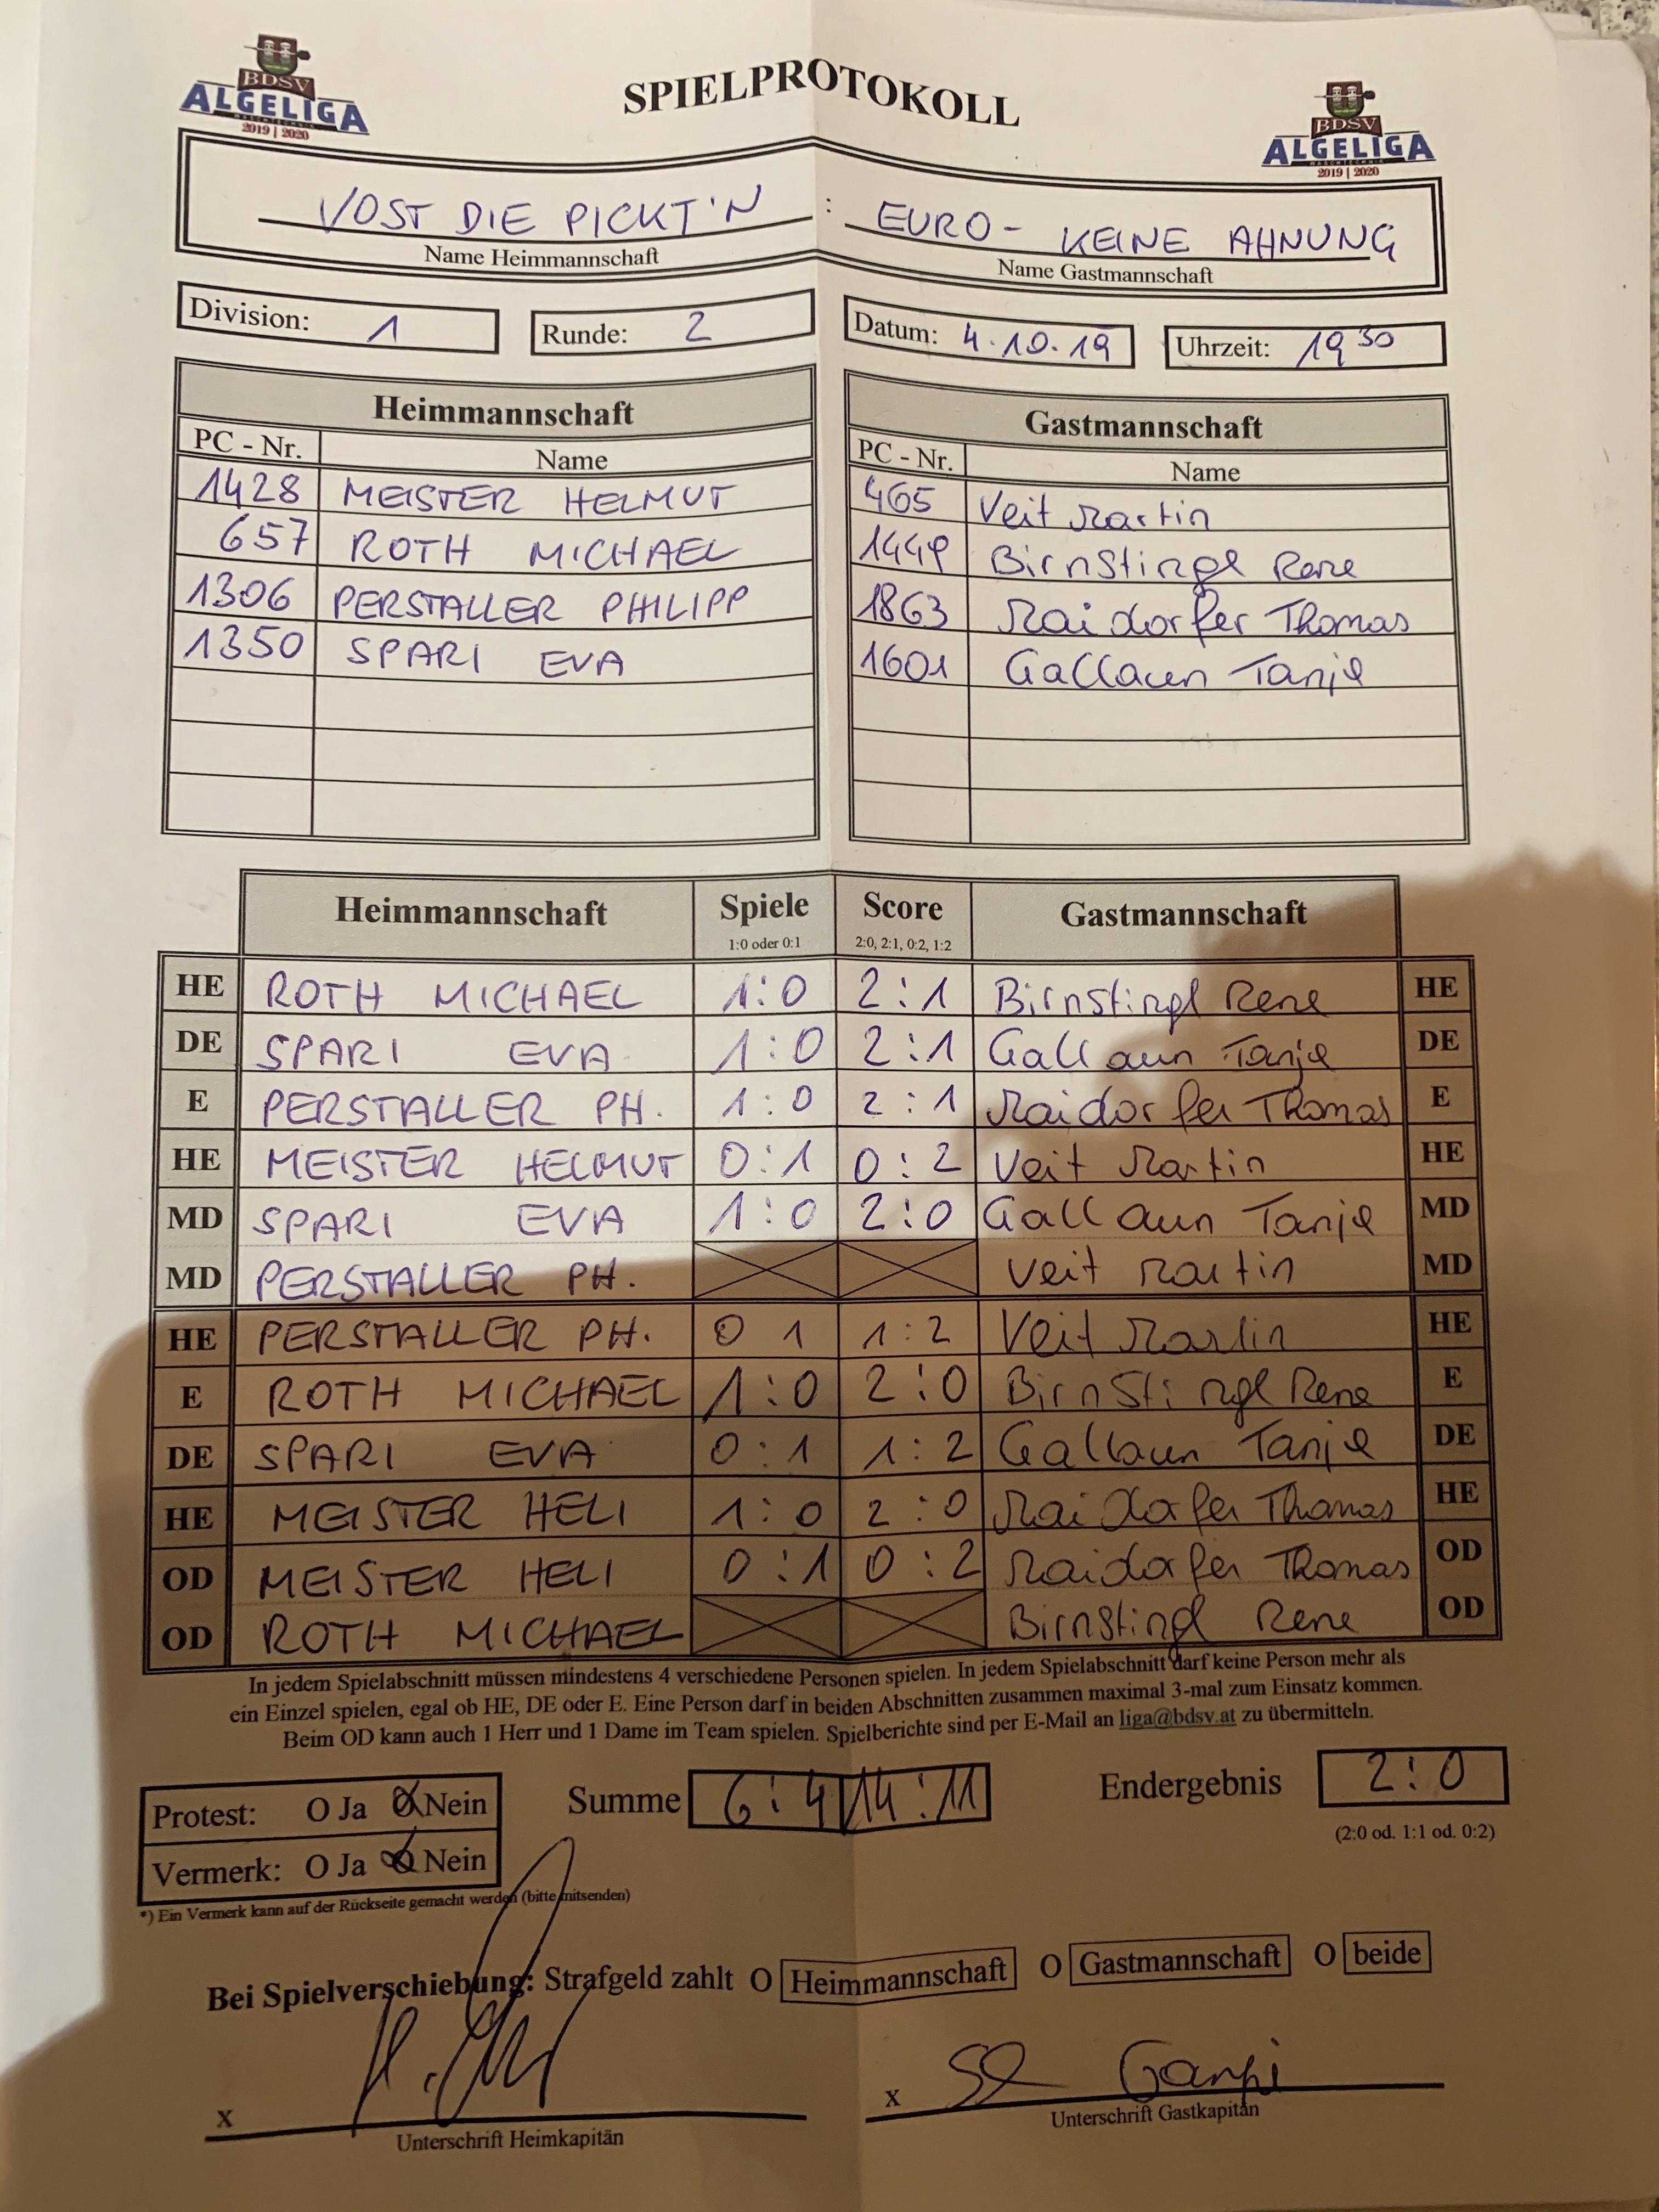 BDSV
ALGELIGA
2019 | 2020
SPIELPROTOKOLL
BDSV
ALGELIGA
2019 | 2020
VOST DIE PICKT'N : EURO - KEINE AHNUNG
Name Heimmannschaft Name Gastmannschaft
Division: 1 Runde: 2 Datum: 4.10.19 Uhrzeit: 19 30
Heimmannschaft
PC - Nr. Name
1428 MEISTER HELMUT
657 ROTH MICHAEL
1306 PERSTALLER PHILIPP
1350 SPARI EVA
Gastmannschaft
PC - Nr. Name
465 Veit Martin
1449 Birnstingl Rene
1863 Maidorfer Thomas
1601 Gallaun Tanja
Heimmannschaft Spiele Score Gastmannschaft
1:0 oder 0:1 2:0, 2:1, 0:2, 1:2
HE ROTH MICHAEL 1:0 2:1 Birnstingl Rene HE
DE SPARI EVA 1:0 2:1 Gallaun Tanja DE
E PERSTALLER PH. 1:0 2:1 Maidorfer Thomas E
HE MEISTER HELMUT 0:1 0:2 Veit Martin HE
MD SPARI EVA 1:0 2:0 Gallaun Tanja MD
MD PERSTALLER PH. Veit Martin MD
HE PERSTALLER PH. 0 1 1:2 Veit Martin HE
E ROTH MICHAEL 1:0 2:0 Birnstingl Rene E
DE SPARI EVA 0:1 1:2 Gallaun Tanja DE
HE MEISTER HELI 1:0 2:0 Maidorfer Thomas HE
OD MEISTER HELI 0:1 0:2 Maidorfer Thomas OD
OD ROTH MICHAEL Birnstingl Rene OD
In jedem Spielabschnitt müssen mindestens 4 verschiedene Personen spielen. In jedem Spielabschnitt darf keine Person mehr als
ein Einzel spielen, egal ob HE, DE oder E. Eine Person darf in beiden Abschnitten zusammen maximal 3-mal zum Einsatz kommen.
Beim OD kann auch 1 Herr und 1 Dame im Team spielen. Spielberichte sind per E-Mail an liga@bdsv.at zu übermitteln.
Protest: O Ja O Nein Summe 6:4 14:11 Endergebnis 2:0
Vermerk: O Ja O Nein (2:0 od. 1:1 od. 0:2)
*) Ein Vermerk kann auf der Rückseite gemacht werden (bitte mitsenden)
Bei Spielverschiebung: Strafgeld zahlt O Heimmannschaft O Gastmannschaft O beide
x x
Unterschrift Heimkapitän Unterschrift Gastkapitän